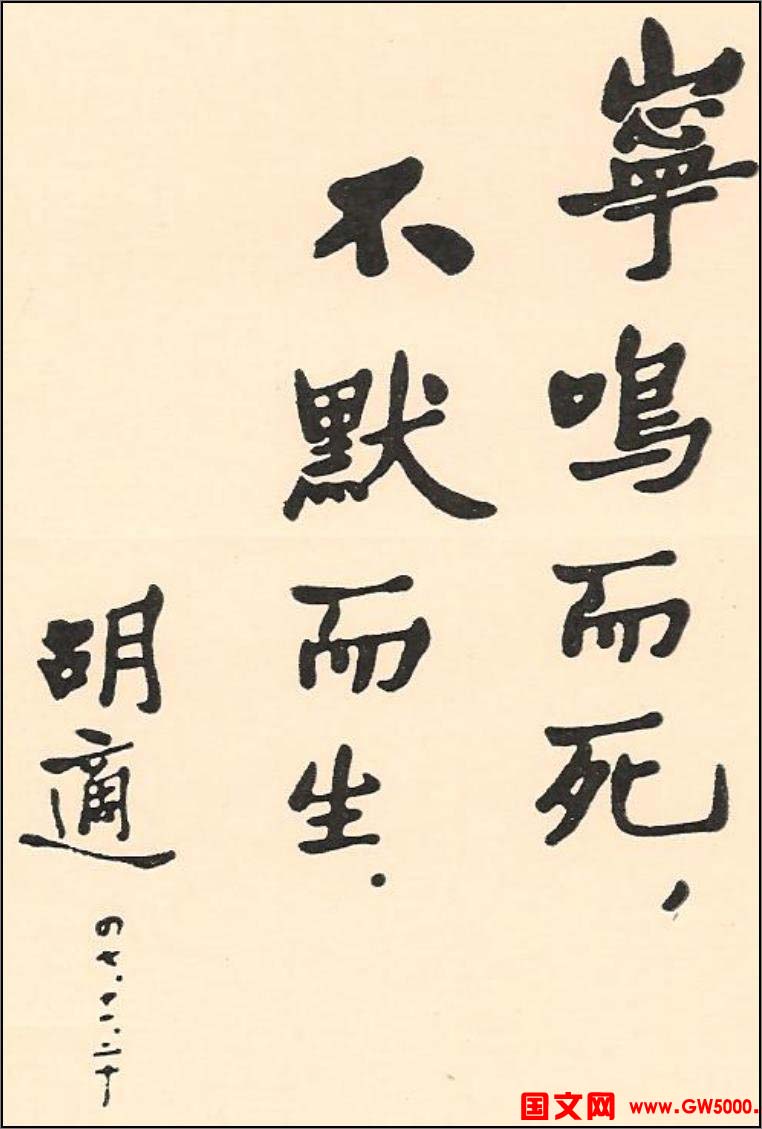 寧鳴而死，
不默而生．
胡適
四七．十二．二十
国文网 www.GW5000.